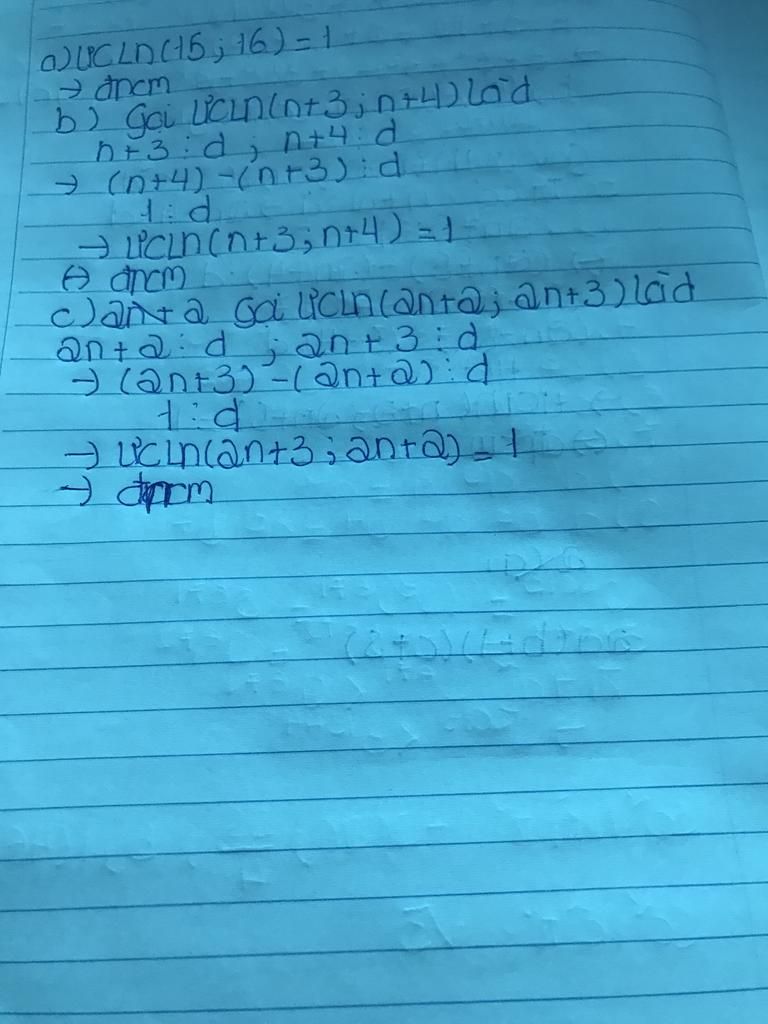 a) ƯCLN(15; 16) = 1
→ đpcm
b) Gọi ƯCLN(n+3; n+4) là d
n+3 ⋮ d ; n+4 ⋮ d
→ (n+4) - (n+3) ⋮ d
1 ⋮ d
→ ƯCLN(n+3; n+4) = 1
↔ đpcm
c) 2n+2 Gọi ƯCLN(2n+2; 2n+3) là d
2n+2 ⋮ d ; 2n+3 ⋮ d
→ (2n+3) - (2n+2) ⋮ d
1 ⋮ d
→ ƯCLN(2n+3; 2n+2) = 1
→ đpcm